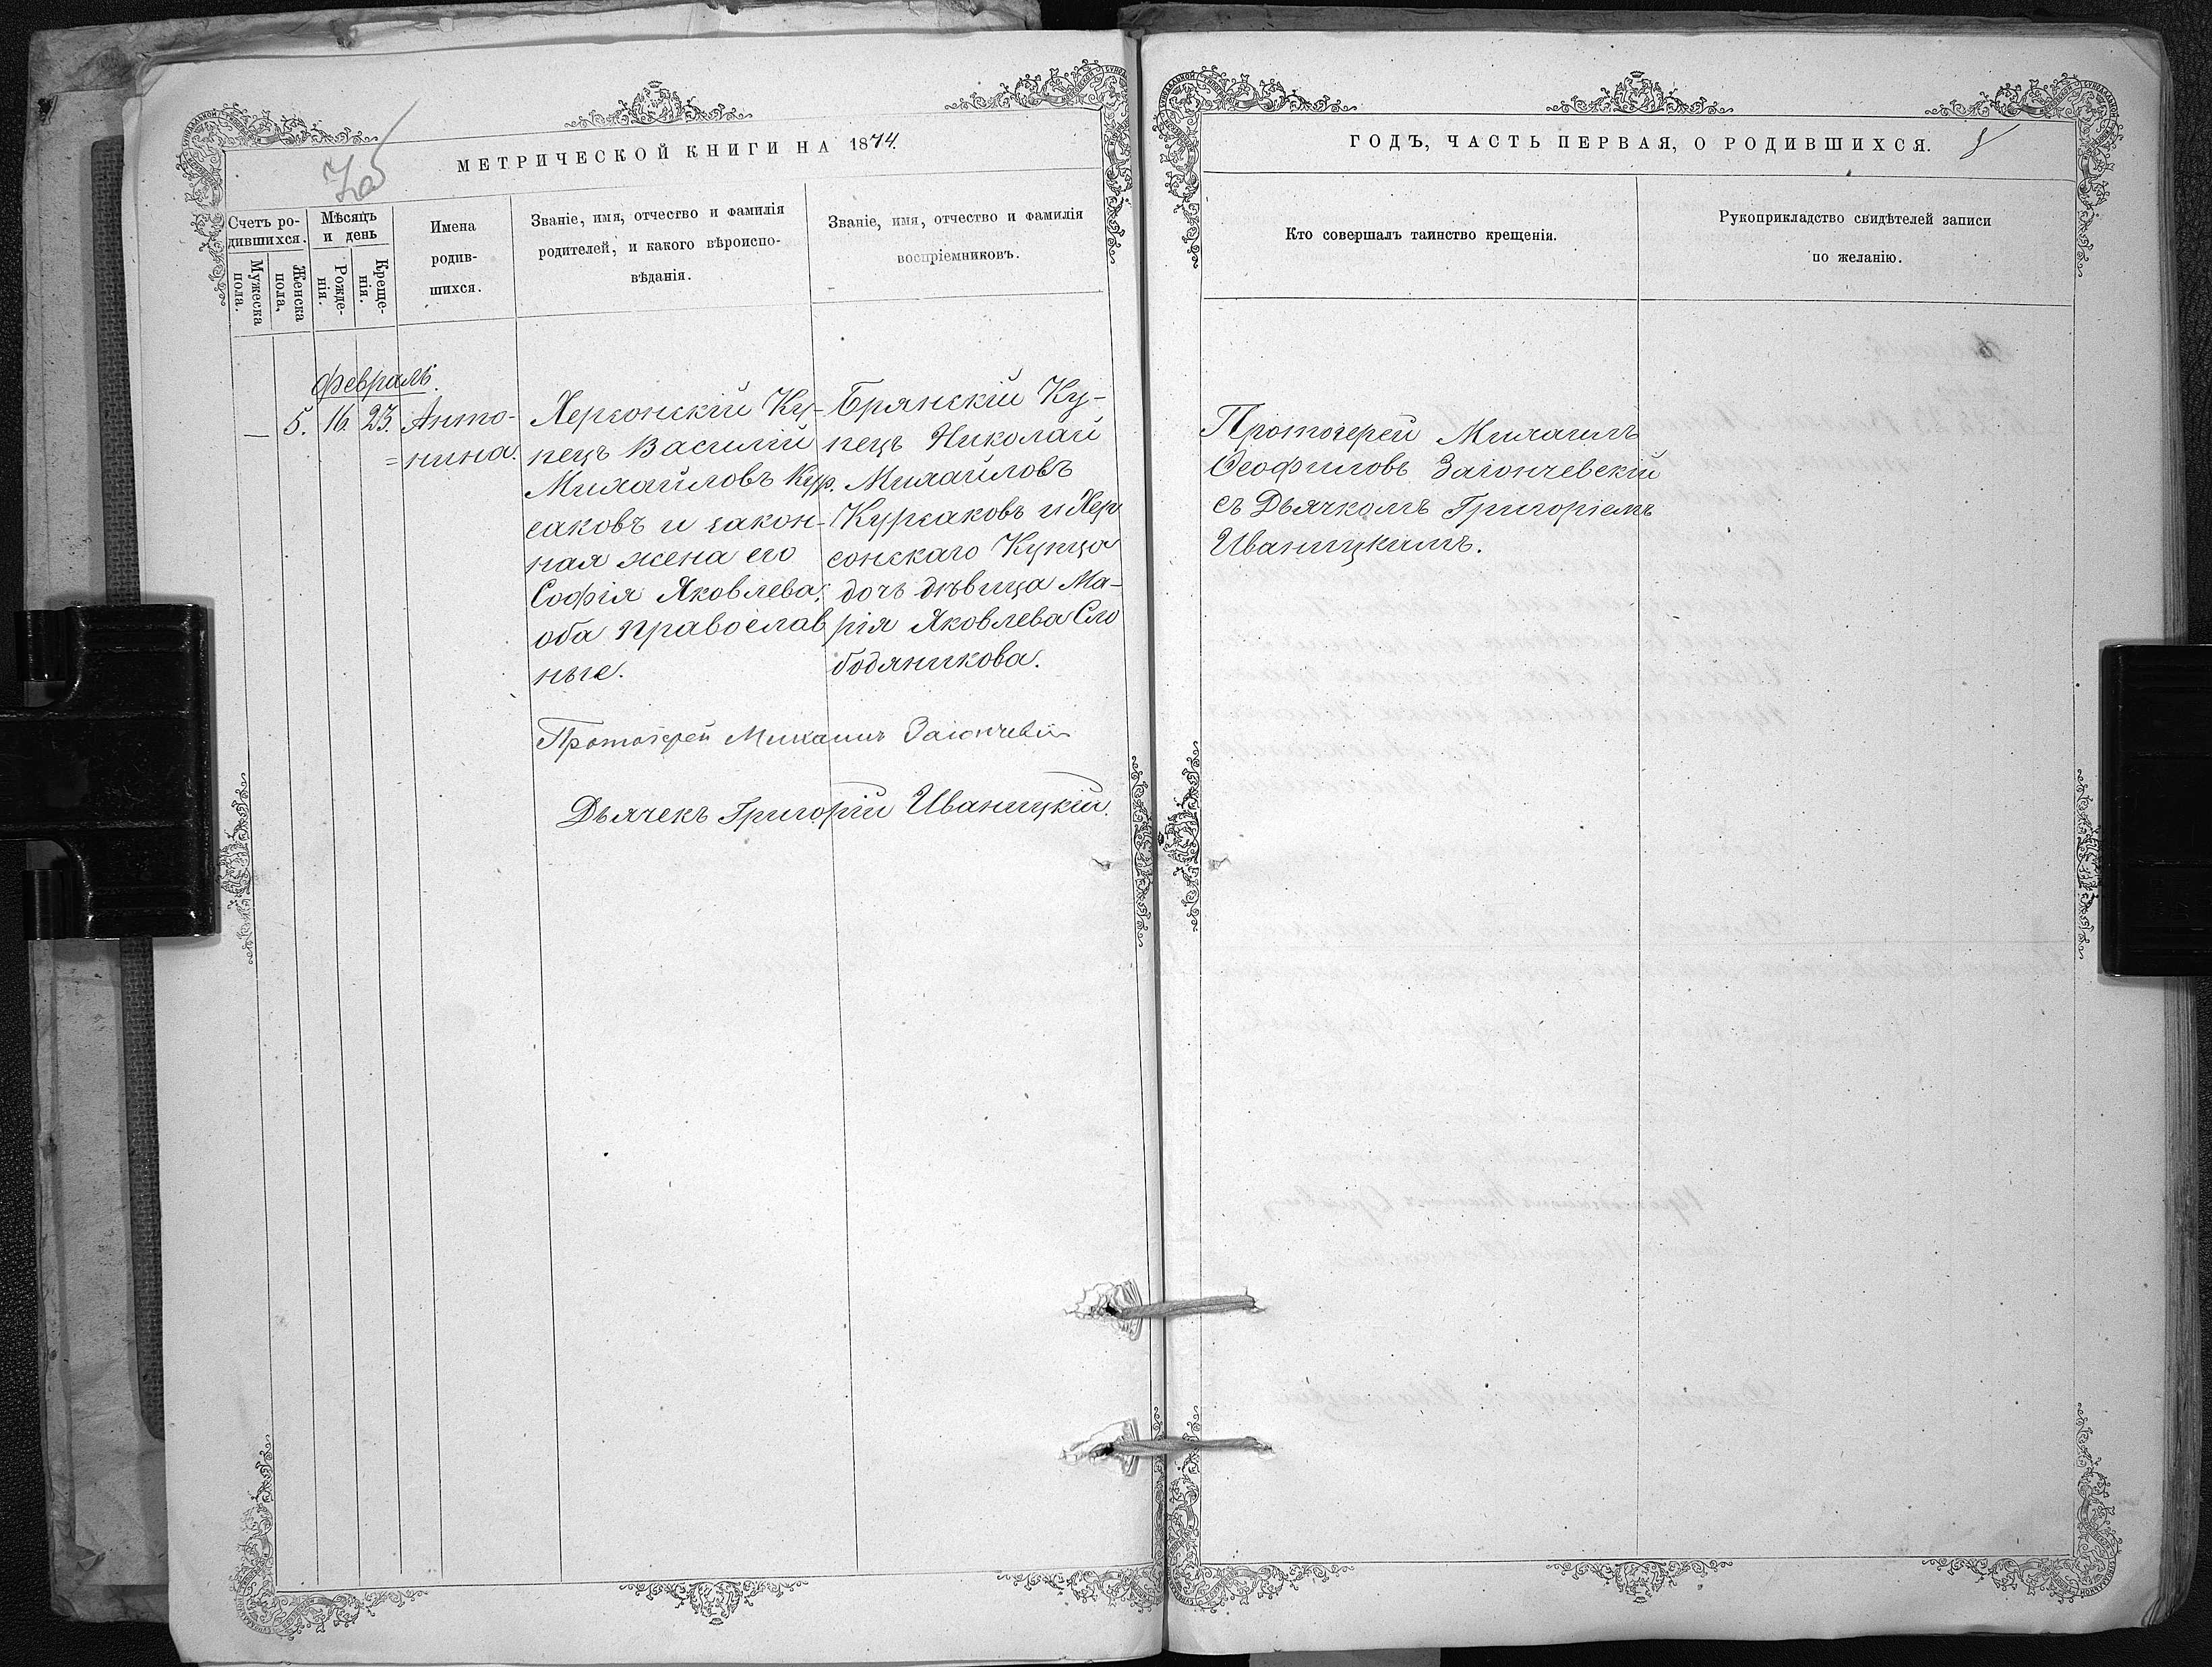 МЕТРИЧЕСКОЙ КНИГИ НА 1874.
Счетъ ро-
дившихся.
Мужеска
пола.
Женска
пола.
Мѣсяцъ
и день
Рожде-
нія.
Креще-
нія.
Имена
родив-
шихся.
Званіе, имя, отчество и фамилія
родителей, и какого вѣроиспо-
вѣданія.
Званіе, имя, отчество и фамилія
воспріемниковъ.
Февраль.
— 5. 16. 23.
Анто-
=нина.
Херсонскій Ку-
пецъ Василій
Михайловъ Кур-
саковъ и закон-
ная жена его
Софія Яковлева,
оба православ
ные.
Брянскій Ку-
пецъ Николай
Михайловъ
Курсаковъ и Хер
сонскаго Купца
дочь дѣвица Ма-
рія Яковлева Сло
бодяникова.
Протоіерей Михаилъ Заіончевскій
Дьячекъ Григорій Иваницкій.
ГОДЪ, ЧАСТЬ ПЕРВАЯ, О РОДИВШИХСЯ.
Кто совершалъ таинство крещенія.
Рукоприкладство свидѣтелей записи
по желанію.
Протоіерей Михаилъ
Ѳеофиловъ Заіончевскій
съ Дьячкомъ Григоріемъ
Иваницкимъ.